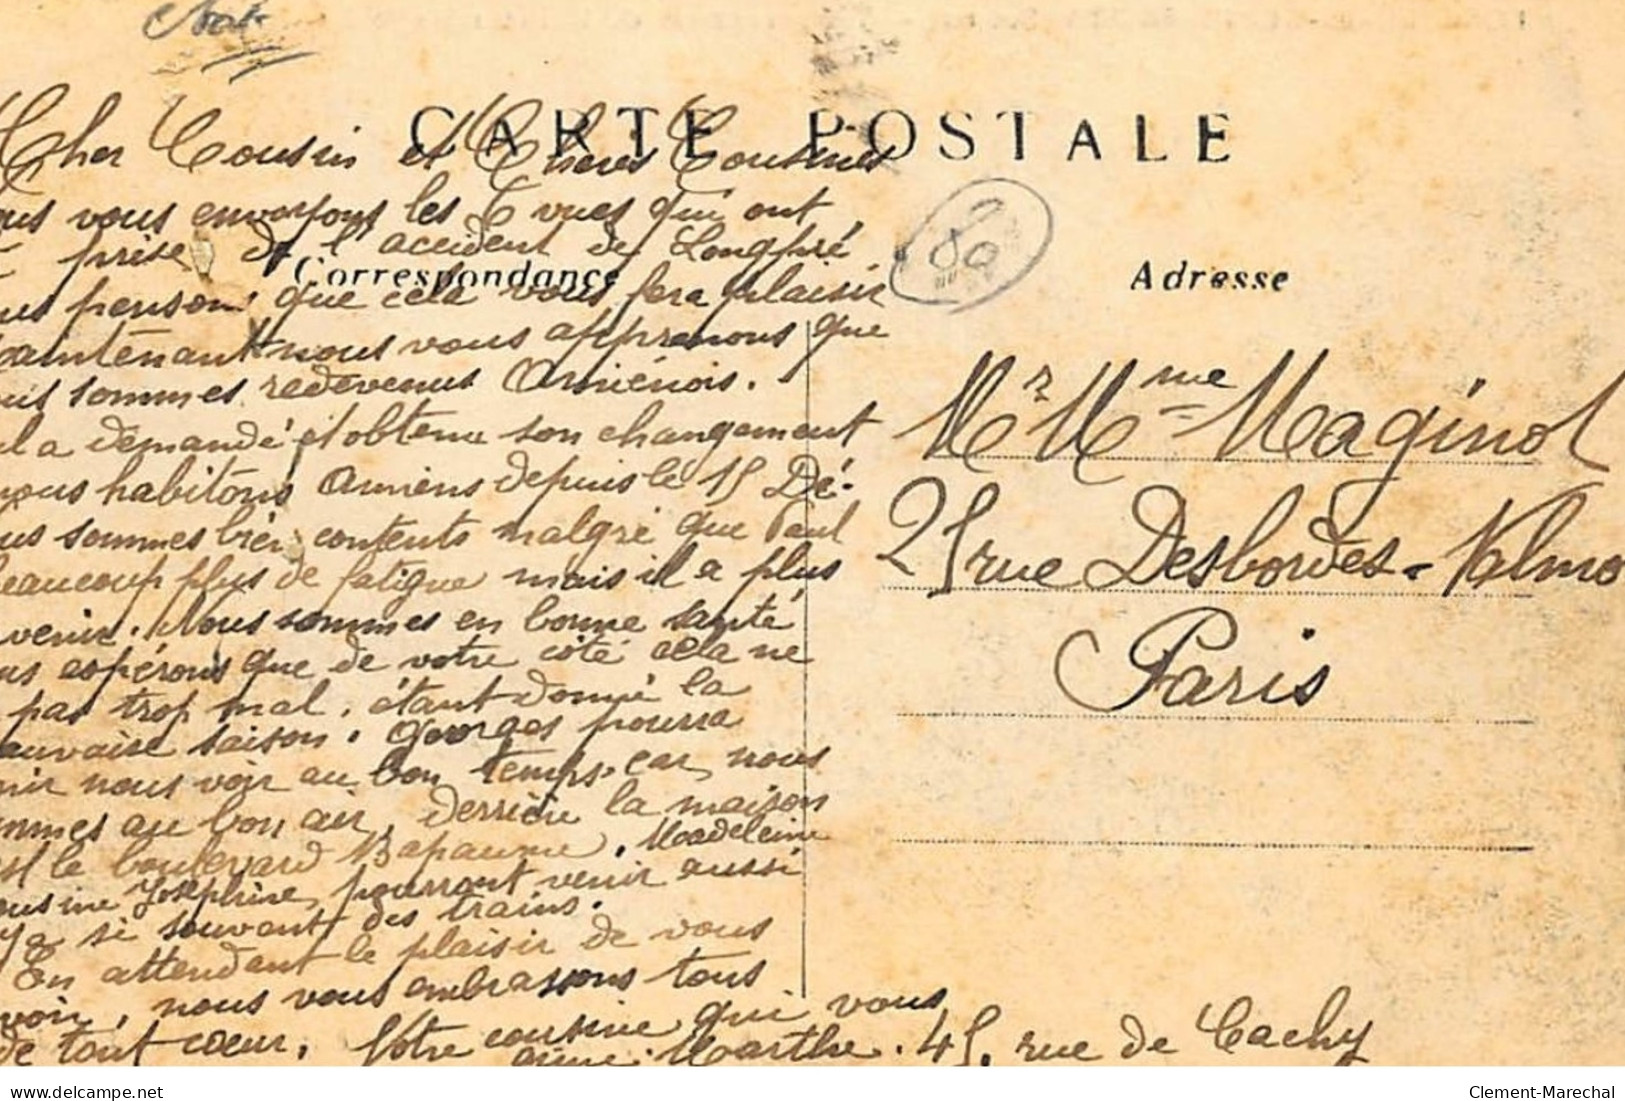 CARTE POSTALE
Cher Cousin et Chères Cousines
vous envoyons les 6 vues qui ont
prise de l'accident de Longpré
pensons que cela vous fera plaisir
Correspondance
maintenant nous vous apprenons que
sommes redevenus Amiénois.
il a demandé et obtenu son changement
nous habitons Amiens depuis le 15 Dé-
sommes bien contents malgré que Paul
beaucoup plus de fatigue mais il a plus
venir. Nous sommes en bonne santé
espérons que de votre côté cela ne
pas trop mal, étant donné la
mauvaise saison. Georges pourra
venir nous voir au bon temps, car nous
sommes au bon air, derrière la maison
est le boulevard Bapaume. Madeleine
cousine Joséphine pourront venir aussi
y a si souvent des trains.
En attendant le plaisir de vous
voir, nous vous embrassons tous
de tout coeur. Votre cousine qui vous
aime. Marthe. 45, rue de Cachy
80
Adresse
Mr Mme Maginot
25 rue Desbordes-Valmo
Paris
delcampe.net
Clement-Marechal